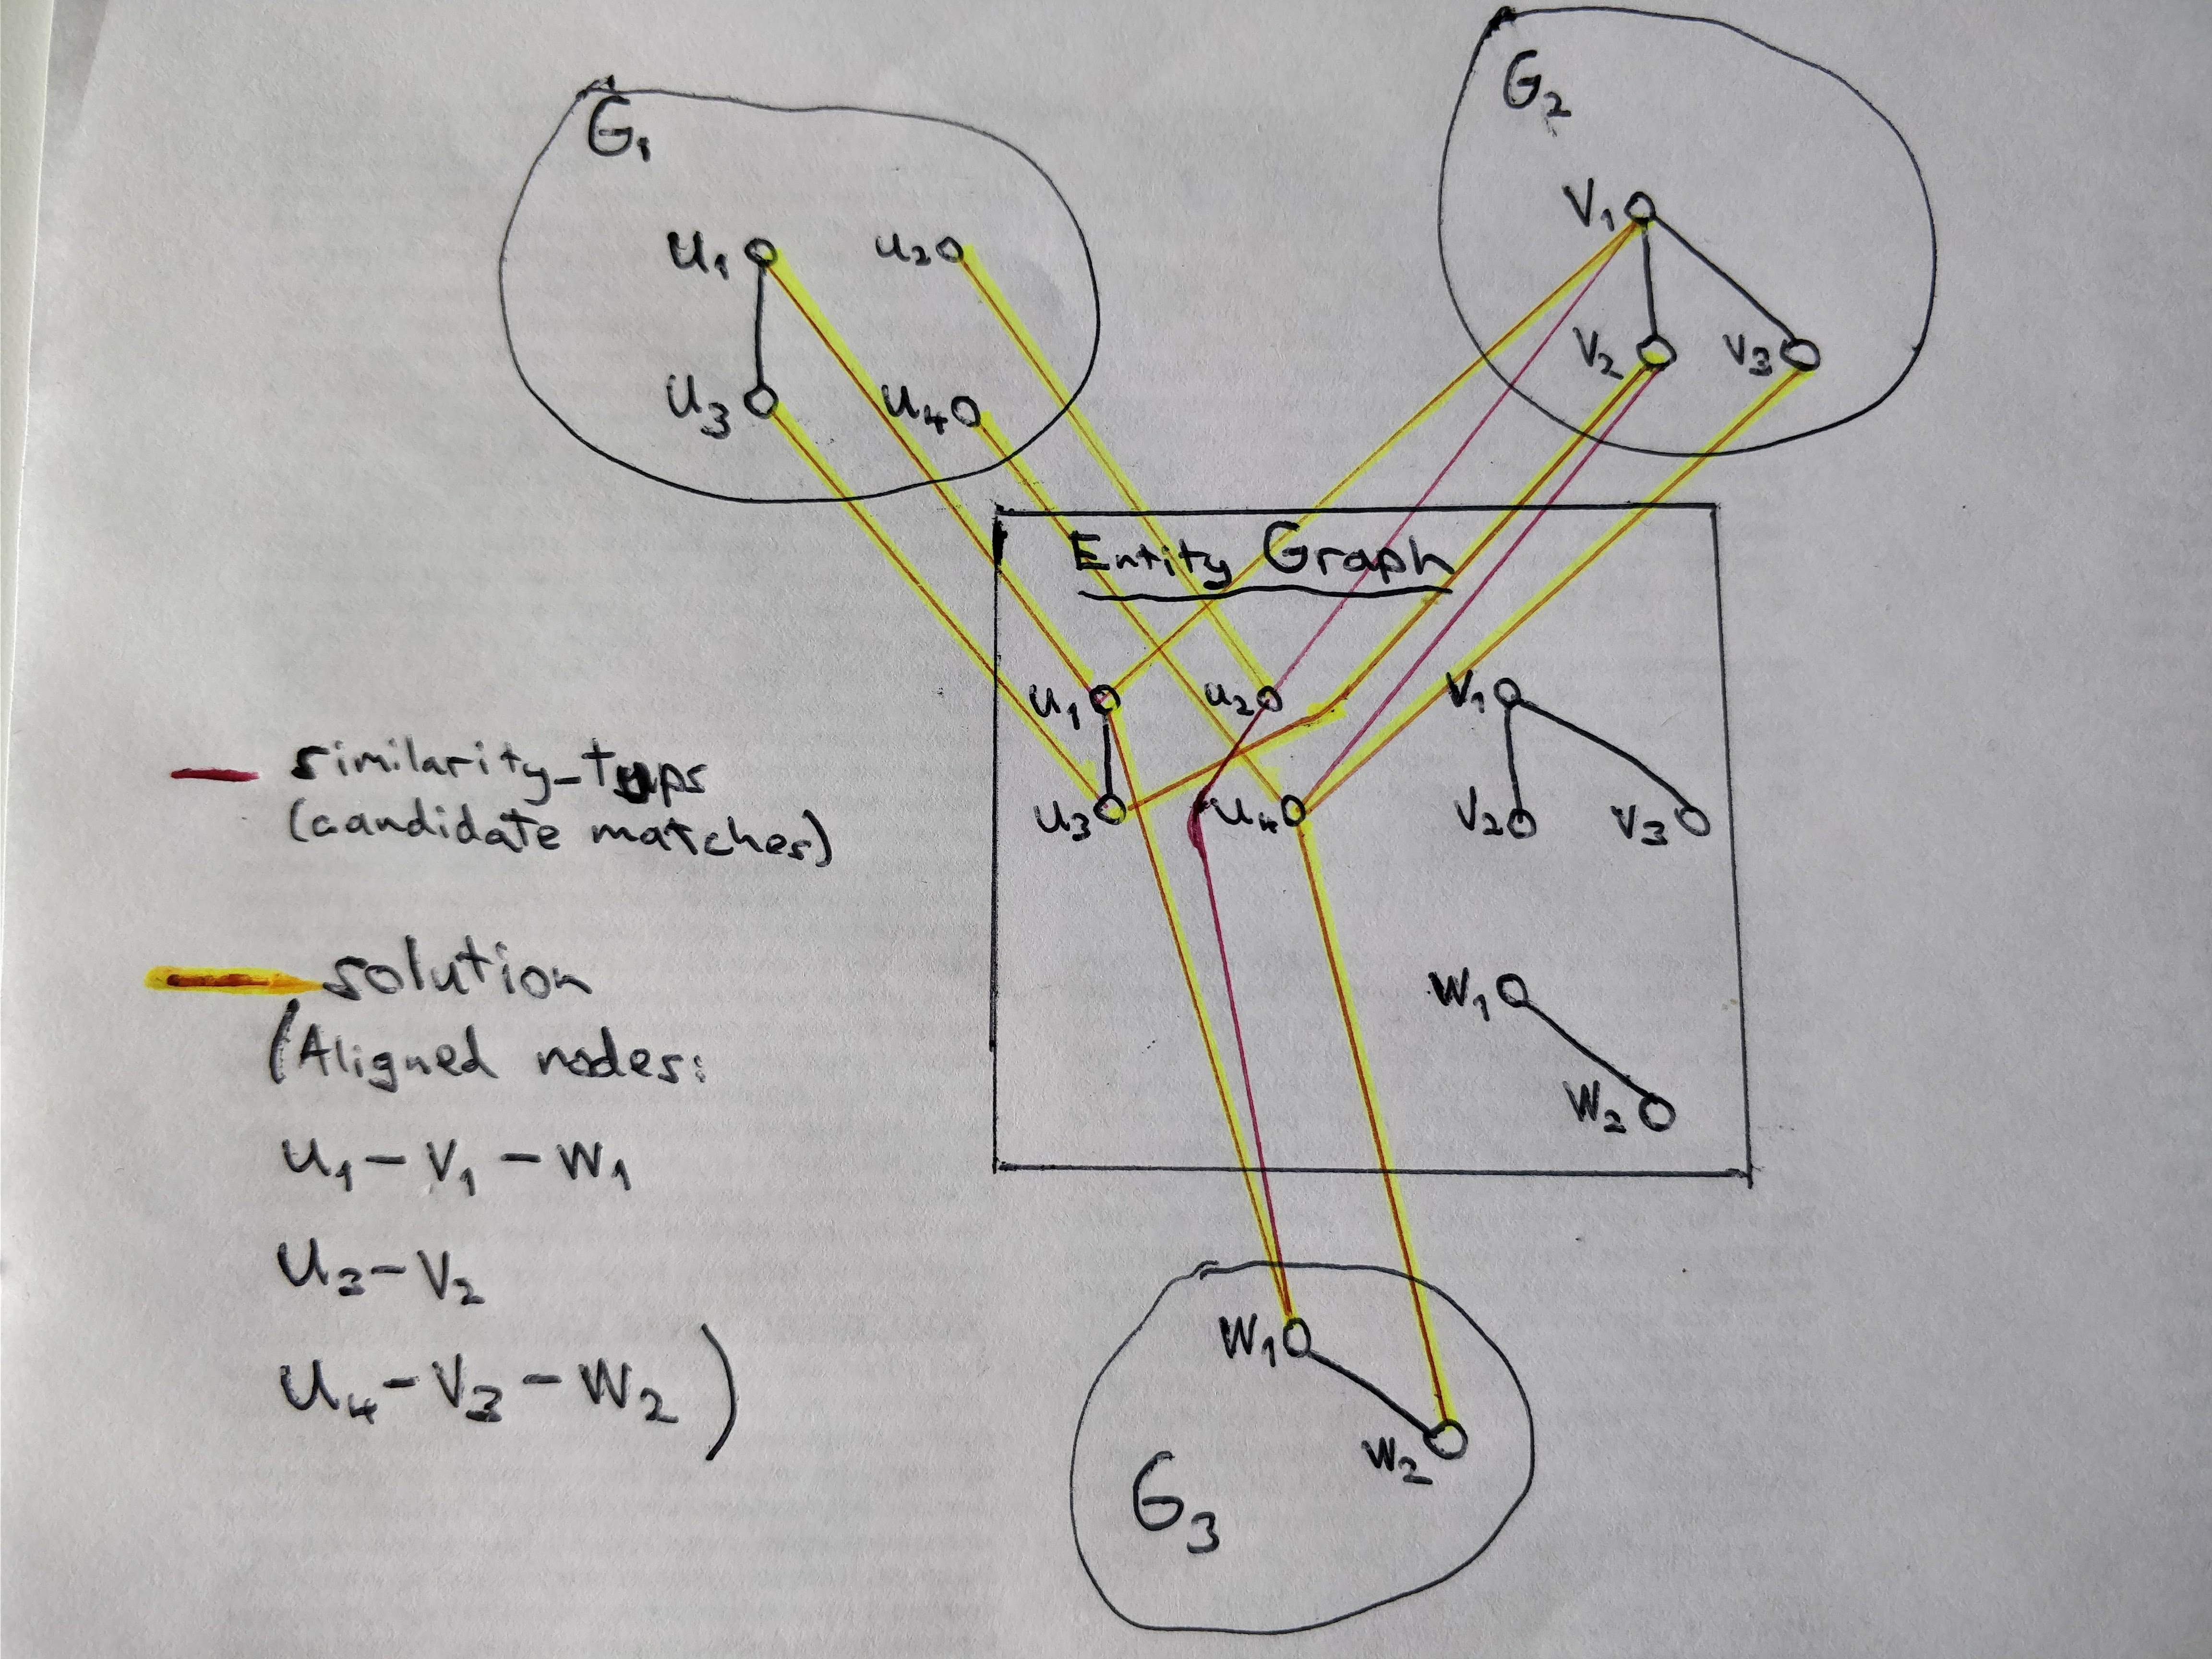 G₁
u₁ u₂
u₃ u₄
G₂
V₁
V₂ V₃
Entity Graph
u₁ u₂ V₁
u₃ u₄ V₂ V₃
W₁
W₂
similarity-tups
(candidate matches)
solution
(Aligned nodes:
u₁ – V₁ – W₁
u₃ – V₂
u₄ – V₃ – W₂)
W₁
W₂
G₃